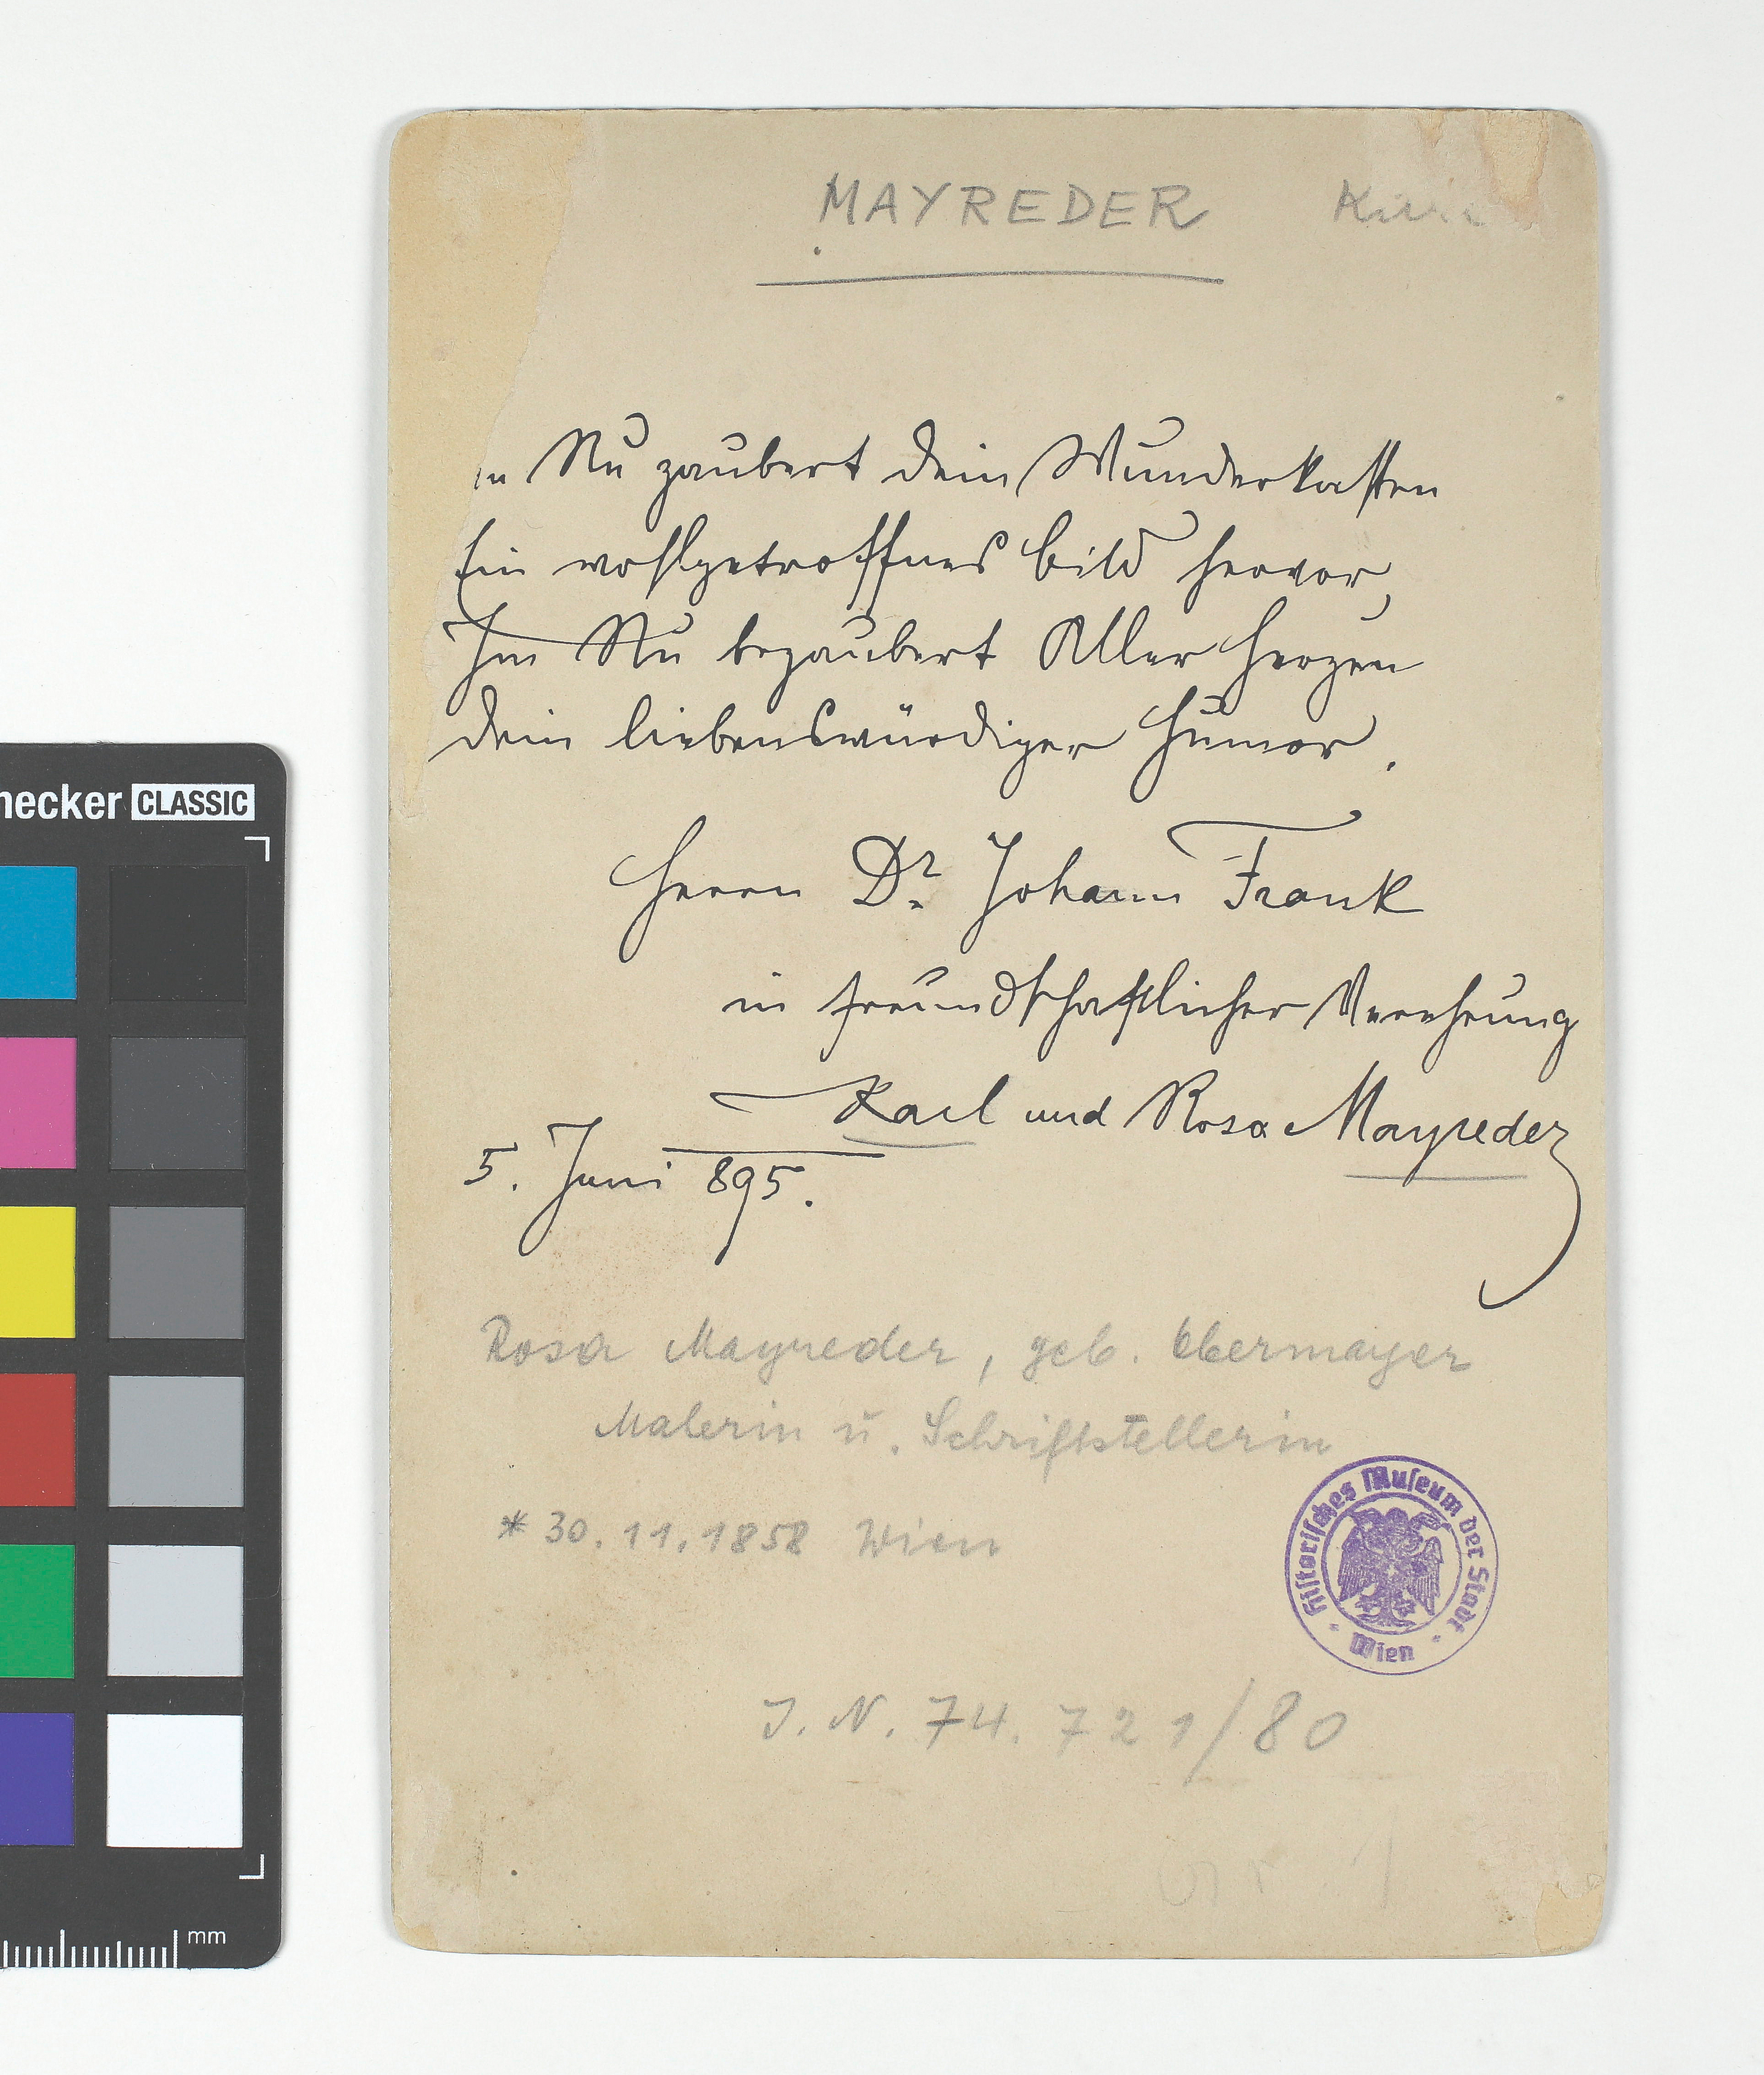 MAYREDER
Nu zaubert dein Wunderkasten
Ein wohlgetroffnes Bild hervor,
Im Nu bezaubert Aller Herzen
Dein liebenswürdiger Humor.
Herrn Dr. Johann Frank
in freundschaftlicher Verehrung
Karl und Rosa Mayreder
5. Juni 895.
Rosa Mayreder, geb. Obermayer
Malerin u. Schriftstellerin
* 30.11.1858 Wien
Historisches Museum der Stadt
Wien
J. N. 74.721/80
hecker CLASSIC
mm